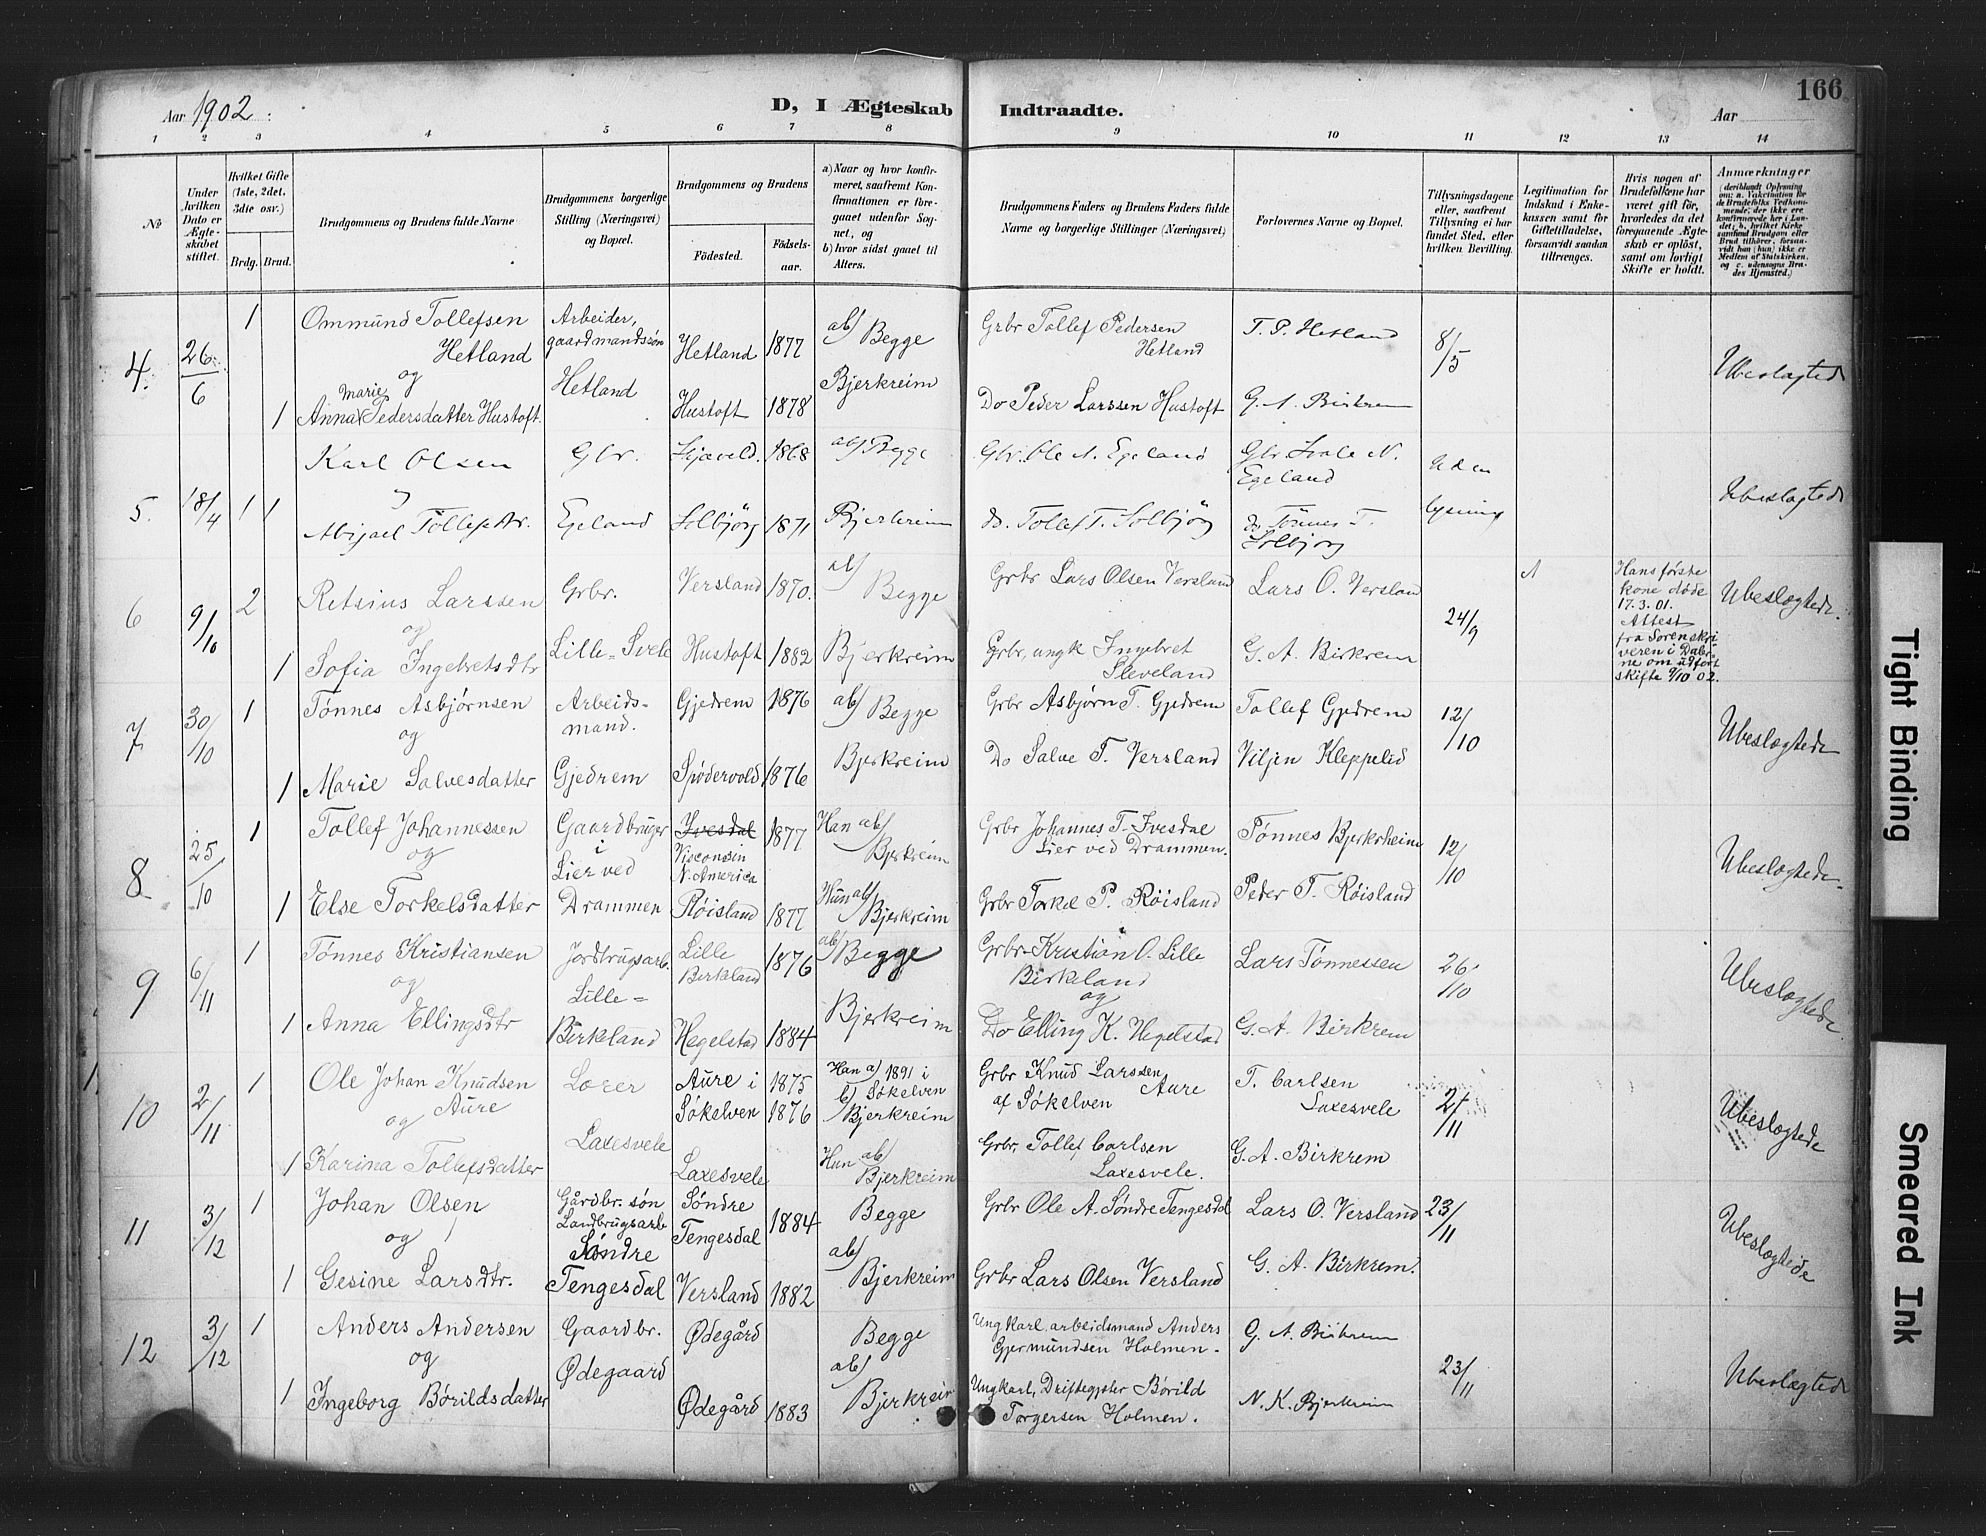 Aar 1902.
D, I Ægteskab Indtraadte.
Aar
166
1 2 3 4 5 6 7 8 9 10 11 12 13 14
No
Under hvilken Dato er Ægteskabet stiftet.
Hvilket Gifte (1ste, 2det, 3die osv.)
Brdg. Brud.
Brudgommens og Brudens fulde Navne
Brudgommens borgerlige Stilling (Næringsvei) og Bopæl.
Brudgommens og Brudens
Fødested. Fødselsaar.
a) Naar og hvor konfirmeret, saafremt Konfirmationen er foregaaet udenfor Sognet, og
b) hvor sidst gaaet til Alters.
Brudgommens Faders og Brudens Faders fulde Navne og borgerlige Stillinger (Næringsvei)
Forlovernes Navne og Bopæl.
Tillysningsdagene eller, saafremt Tillysning ei har fundet Sted, efter hvilken Bevilling.
Legitimation for Indskud i Enkekassen samt for Giftetilladelse, forsaavidt saadan tiltrænges.
Hvis nogen af Brudefolkene har været gift før, hvorledes da det foregaaende Ægteskab er opløst, samt om lovligt Skifte er holdt.
Anmærkninger
(deriblandt Oplysning om: a. Vakcination for de Brudefolks Vedkommende, der ikke ere konfirmerede her i Landet; b. hvilket Kirkesamfund Brudgom eller Brud tilhører, forsaavidt han (hun) ikke er Medlem af Statskirken, og c. udensogns Brudes Hjemsted.)
4. 26/6 1 Ommund Tollefsen Hetland
og
1 Anna Marie Pedersdatter Hustoft.
Arbeider, gaardmandssøn
Hetland
Hetland 1877
Hustoft 1878
ab) Begge
Bjerkreim
Grbr Tollef Pedersen Hetland
Do Peder Larssen Hustoft
T. P. Hetland
G. A. Birkrem
8/5
Ubeslægtede
5. 18/4 1 1 Karl Olsen
Abigael Tollefsdtr.
Gbr.
Egeland
1868
Solbjørg 1871
ab) Begge
Bjerkreim
Gbr. Ole N. Egeland
do. Tollef T. Solbjørg
Egeland
do Tønnes T. Solbjørg
Uden lysning
Ubeslægtede
6 9/10 2 Retsius Larssen
og
1 Sofia Ingebretsdtr
Grbr.
Lille-Svele
Versland 1870.
Hustoft 1882
ab) Begge
Bjerkreim
Grbr Lars Olsen Versland
Grbr, ungk Ingebret Sleveland
Lars O. Versland
G. A. Birkrem
24/9
Hans første kone døde 17.3.01. Attest fra Sorenskriveren i Dalerne om udført skifte 9/10 02.
Ubeslægtede.
7 30/10 1 Tønnes Asbjørnsen
og
1 Marie Salvesdatter
Arbeidsmand.
Gjedrem
Gjedrem 1876
Spødervold 1876
ab) Begge
Bjerkreim
Grbr Asbjørn T. Gjedrem
Do Salve T. Versland
Tollef Gjedrem
Viljen Kleppelid
12/10
Ubeslægtede
8 25/10 1 Tollef Johannessen
og
1 Else Torkelsdatter
Gaardbruger i Lier ved Drammen
Ivesdal Visconsin N. America 1877
Røisland 1877
Han ab) Bjerkreim
Hun ab) Bjerkreim
Grbr Johannes T. Ivesdal
Lier ved Drammen.
Grbr Torkel P. Røisland
Tønnes Bjerkrheim
Peder T. Røisland
12/10
Ubeslægtede.
9 6/11 1 Tønnes Kristiansen
og
1 Anna Ellingsdtr
Jordbrugsarb.
Lille-Birkland
Lille Birkland 1876
Hegelstad 1884
ab) Begge
Bjerkreim
Grbr Kristian O. Lille Birkeland
og
Do Elling K. Hegelstad
Lars Tønnessen
G. A. Birkrem
26/10
Ubeslægtede
10 2/11 1 Ole Johan Knudsen Aure
og
1 Karina Tollefsdatter
Laxesvele
Aure i Søkelven 1875
1876
Laxesvele
Han a) 1891 i Søkelven
b) Bjerkreim
Hun ab) Bjerkreim
Grbr Knud Larssen Aure
af Søkelven
Grbr, Tollef Carlsen Laxesvele.
T. Carlsen Laxesvele
G. A. Birkrem
2/11
Ubeslægtede
11 3/12 1 Johan Olsen
og
1 Gesine Larsdtr.
Gårdbr. søn
Landbrugsarb
Søndre Tengesdal
Søndre Tengesdal 1884
Versland 1882
Begge
ab) Bjerkreim
Grbr Ole A. Søndre Tengesdal
Grbr Lars Olsen Versland
Lars O. Versland
G. A. Birkrem.
23/11
Ubeslægtede
12 3/12 1 Anders Andersen
og
1 Ingeborg Børildsdatter
Gaardbr.
Ødegaard
Ødegård
Ødegård 1883
Begge
ab) Bjerkreim
Ungkarl. arbeidsmand Anders Gjermundsen Holmen.
Ungkarl, Børild Torgersen Holmen.
G. A. Birkrem
N. K. Bjerkreim
23/11
Ubeslægtede
Tight Binding
Smeared Ink